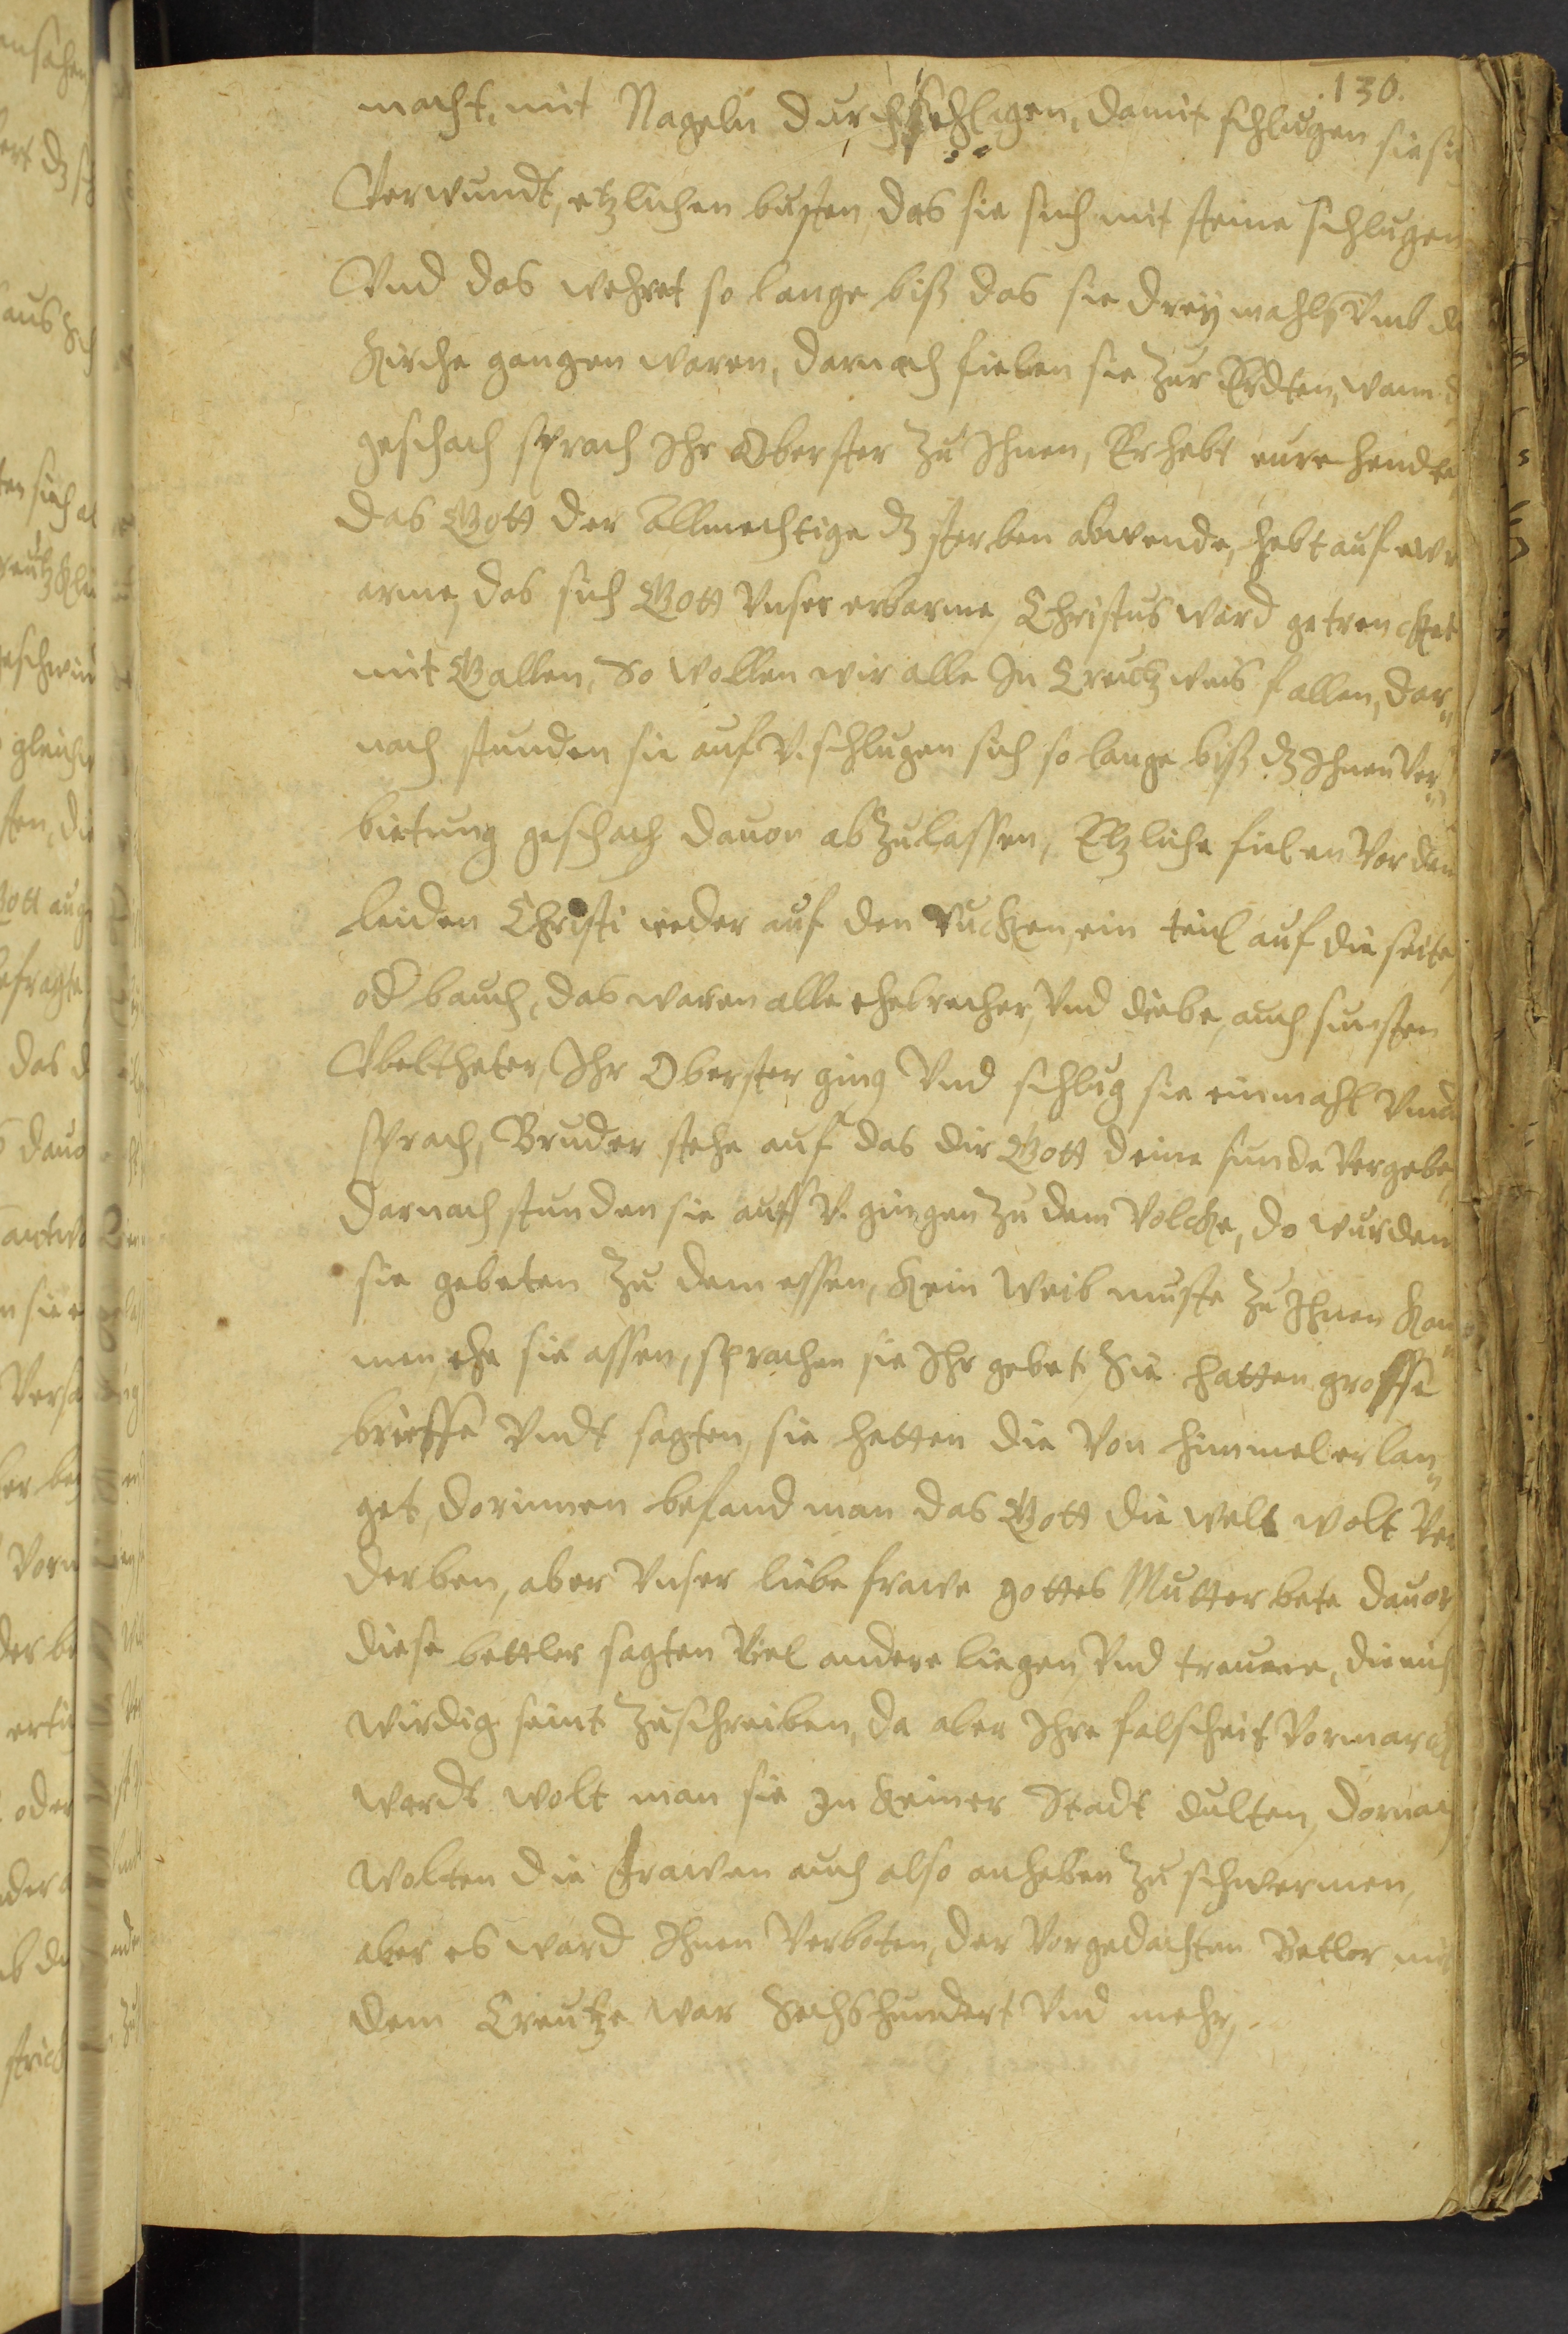 130.
macht, mit Nageln durchschlagen, damit schlugen sie si
Verwundt, etzlichen busten, das sie sich mit steine schlugen
Vnd das wehret so lange biß das sie drey mahls Vmb d
Kirche gangen waren, darnach fielen sie zur Erdten, wann d
geschach sprach Ihr Oberster zu Ihnen, Erhebt eure hendte,
das Gott der Allmechtige dz sterben abwende, hebt auf ewr
arme, das sich Gott Vnser erbarme, Christus ward getrencket
mit Gallen, So wollen wir alle In Creutz weis fallen, dar„
nach stunden sie auf V. schlugen sich so lange biß dz Ihnen Ver„
bietung geschach dauon abzulassen, Etzliche fielen Vor dem
leiden Christi nieder auf den Rucken, ein teil auf die seite,
od bauch, das waren alle ehebrecher, Vnd diebe, auch sunsten
Vbeltheter, Ihr Oberster ging Vnd schlug sie einmahl Vnnd
sprach, Bruder stehe auf das dir Gott deine sunde Vergebe,
darnach stunden sie auff V. gingen zu dem Volcke, do wurden
sie gebeten zu dem essen, Kein Weib muste zu Ihnen kom„
men, ehe sie assen, sprachen sie Ihr gebet, Sie hatten grosse
brieffe Vndt sagten, sie hetten die Von himmel erlan„
get, dorinnen befand man das Gott die welt wolt Ver
derben, aber Vnser liebe frawe gottes Mutter bete dauor,
diese bettler sagten Viel andere liegen Vnd treume, die nich
wirdig seint zuschreiben, da aber Ihre falscheit Vormarckt
wardt wolt man sie In keiner Stadt dulten, dornach
wolten die frawen auch also anheben zu schwermen,
aber es ward Ihnen Verboten, der Vorgedachten Betler mit
dem Creutze war Sechshundert Vnd mehr,